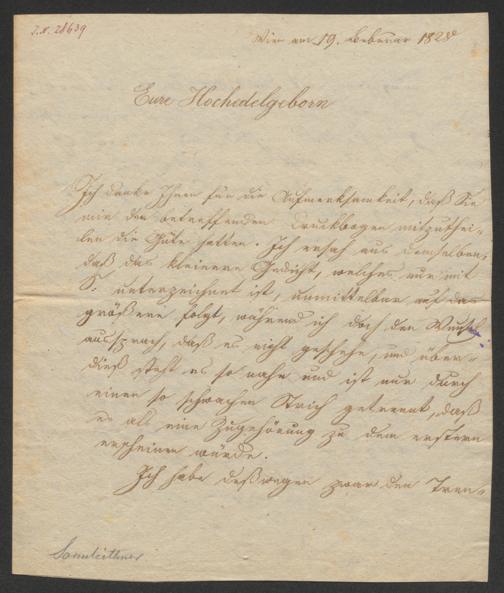 I.N. 28639
Wien am 19. Februar 1828
Eure Hochedelgeborn
Ich danke Ihnen für die Aufmerksamkeit, daß Sie
mir den betreffenden Druckbogen mitzuthei-
len die Güte hatten. Ich ersah aus demselben,
daß das kleinere Gedicht, welches nur mit
S. unterzeichnet ist, unmittelbar auf das
größere folgt, während ich doch den Wunsch
aussprach, daß es nicht geschehe, und über-
dieß steht es so nahe und ist nur durch
einen so schwachen Strich getrennt, daß
es als eine Zugehörung zu dem erstern
erscheinen würde.
Ich habe deßwegen zwar den Tren-
Sonnleithner